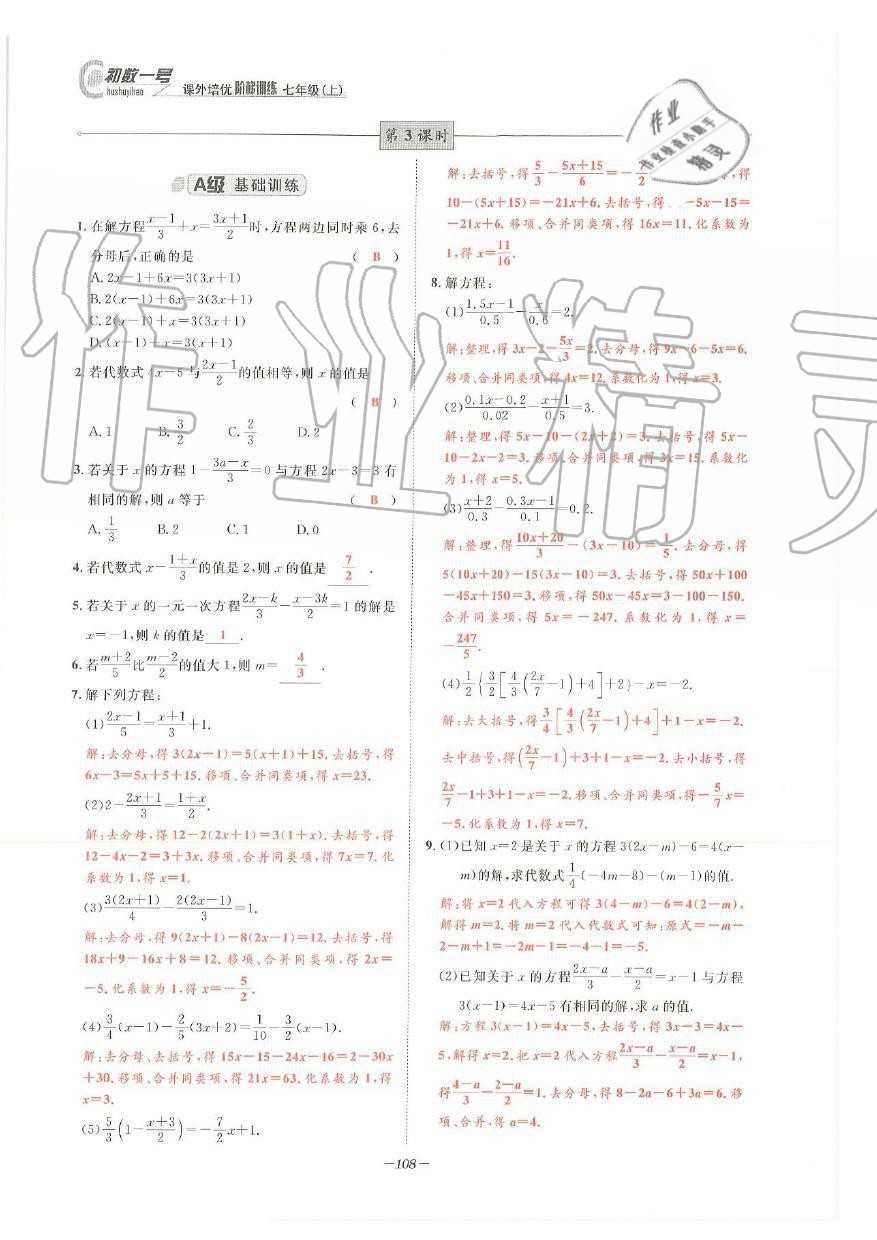 初数一号
hushuyihao
课外培优 阶梯训练 七年级(上)
第3课时
A级 基础训练
1. 在解方程\frac{x-1}{3}+x=\frac{3x+1}{2}时,方程两边同时乘6,去
分母后,正确的是 ( B )
A. 2x-1+6x=3(3x+1)
B. 2(x-1)+6x=3(3x+1)
C. 2(x-1)+x=3(3x+1)
D. (x-1)+x=3(x+1)
2. 若代数式4x-5与\frac{2x-1}{2}的值相等,则x的值是
( B )
A. 1 B. \frac{3}{2} C. \frac{2}{3} D. 2
3. 若关于x的方程1-\frac{3a-x}{3}=0与方程2x-3=3有
相同的解,则a等于 ( B )
A. \frac{1}{3} B. 2 C. 1 D. 0
4. 若代数式x-\frac{1+x}{3}的值是2,则x的值是 \frac{7}{2} .
5. 若关于x的一元一次方程\frac{2x-k}{3}-\frac{x-3k}{2}=1的解是
x=-1,则k的值是 1 .
6. 若\frac{m+2}{5}比\frac{m-2}{2}的值大1,则m= \frac{4}{3} .
7. 解下列方程:
(1)\frac{2x-1}{5}=\frac{x+1}{3}+1.
解:去分母,得3(2x-1)=5(x+1)+15. 去括号,得
6x-3=5x+5+15. 移项、合并同类项,得x=23.
(2)2-\frac{2x+1}{3}=\frac{1+x}{2}.
解:去分母,得12-2(2x+1)=3(1+x). 去括号,得
12-4x-2=3+3x. 移项、合并同类项,得7x=7. 化
系数为1,得x=1.
(3)\frac{3(2x+1)}{4}-\frac{2(2x-1)}{3}=1.
解:去分母,得9(2x+1)-8(2x-1)=12. 去括号,得
18x+9-16x+8=12. 移项、合并同类项,得2x=
-5. 化系数为1,得x=-\frac{5}{2}.
(4)\frac{3}{4}(x-1)-\frac{2}{5}(3x+2)=\frac{1}{10}-\frac{3}{2}(x-1).
解:去分母、去括号,得15x-15-24x-16=2-30x
+30. 移项、合并同类项,得21x=63. 化系数为1,得
x=3.
(5)\frac{5}{3}(1-\frac{x+3}{2})=-\frac{7}{2}x+1.
解:去括号,得\frac{5}{3}-\frac{5x+15}{6}=-\frac{7}{2} 母,得
10-(5x+15)=-21x+6. 去括号,得 -5x-15=
-21x+6. 移项、合并同类项,得16x=11. 化系数为
1,得x=\frac{11}{16}.
8. 解方程:
(1)\frac{1.5x-1}{0.5}-\frac{x}{0.6}=2.
解:整理,得3x-2-\frac{5x}{3}=2. 去分母,得9x-6-5x=6.
移项、合并同类项,得4x=12. 系数化为1,得x=3.
(2)\frac{0.1x-0.2}{0.02}-\frac{x+1}{0.5}=3.
解:整理,得5x-10-(2x+2)=3. 去括号,得5x-
10-2x-2=3. 移项、合并同类项,得3x=15. 系数化
为1,得x=5.
(3)\frac{x+2}{0.3}-\frac{0.3x-1}{0.1}=0.2.
解:整理,得\frac{10x+20}{3}-(3x-10)=\frac{1}{5}. 去分母,得
5(10x+20)-15(3x-10)=3. 去括号,得50x+100
-45x+150=3. 移项,得50x-45x=3-100-150.
合并同类项,得5x=-247. 系数化为1,得x=
-\frac{247}{5}.
(4)\frac{1}{2}{\frac{3}{2}[\frac{4}{3}(\frac{2x}{7}-1)+4]+2}-x=-2.
解:去大括号,得\frac{3}{4}[\frac{4}{3}(\frac{2x}{7}-1)+4]+1-x=-2.
去中括号,得(\frac{2x}{7}-1)+3+1-x=-2. 去小括号,得
\frac{2x}{7}-1+3+1-x=-2. 移项、合并同类项,得-\frac{5}{7}x=
-5. 化系数为1,得x=7.
9. (1)已知x=2是关于x的方程3(2x-m)-6=4(x-
m)的解,求代数式\frac{1}{4}(-4m-8)-(m-1)的值.
解:将x=2代入方程可得3(4-m)-6=4(2-m),
解得m=2. 将m=2代入代数式可知:原式=-m-
2-m+1=-2m-1=-4-1=-5.
(2)已知关于x的方程\frac{2x-a}{3}-\frac{x-a}{2}=x-1与方程
3(x-1)=4x-5有相同的解,求a的值.
解:方程3(x-1)=4x-5,去括号,得3x-3=4x-
5,解得x=2. 把x=2代入方程\frac{2x-a}{3}-\frac{x-a}{2}=x-1,
得\frac{4-a}{3}-\frac{2-a}{2}=1. 去分母,得8-2a-6+3a=6. 移
项、合并,得a=4.
-108-
作业
作业检查小助手
精灵
作业精灵